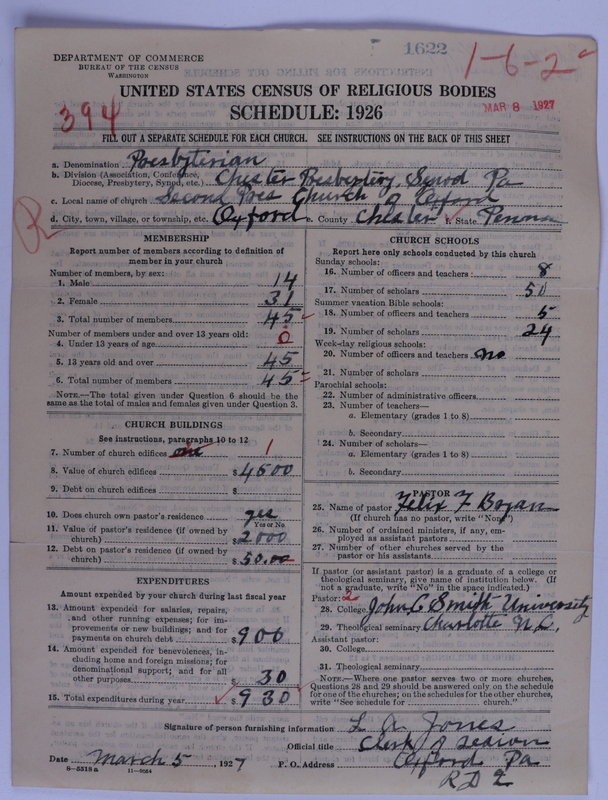 1622
1-6-2
DEPARTMENT OF COMMERCE
BUREAU OF THE CENSUS
WASHINGTON
UNITED STATES CENSUS OF RELIGIOUS BODIES
MAR 8 1927
SCHEDULE: 1926
394
FILL OUT A SEPARATE SCHEDULE FOR EACH CHURCH. SEE INSTRUCTIONS ON THE BACK OF THIS SHEET
a. Denomination Presbyterian
b. Division (Association, Conference, Diocese, Presbytery, Synod, etc.) Chester Presbytery, Synod Pa
c. Local name of church Second Pres Church of Oxford
d. City, town, village, or township, etc. Oxford e. County Chester f. State Penna
MEMBERSHIP
Report number of members according to definition of
member in your church
Number of members, by sex:
1. Male 14
2. Female 31
3. Total number of members 45
Number of members under and over 13 years old:
4. Under 13 years of age 0
5. 13 years old and over 45
6. Total number of members 45
NOTE.—The total given under Question 6 should be the
same as the total of males and females given under Question 3.
CHURCH BUILDINGS
See instructions, paragraphs 10 to 12
7. Number of church edifices one 1
8. Value of church edifices $4500
9. Debt on church edifices $
10. Does church own pastor's residence yes
Yes or No
11. Value of pastor's residence (if owned by
church) $2000
12. Debt on pastor's residence (if owned by
church) $50.00
EXPENDITURES
Amount expended by your church during last fiscal year
13. Amount expended for salaries, repairs,
and other running expenses; for im-
provements or new buildings; and for
payments on church debt $900
14. Amount expended for benevolences, in-
cluding home and foreign missions; for
denominational support; and for all
other purposes $30
15. Total expenditures during year $930
CHURCH SCHOOLS
Report here only schools conducted by this church
Sunday schools:
16. Number of officers and teachers 8
17. Number of scholars 50
Summer vacation Bible schools:
18. Number of officers and teachers 5
19. Number of scholars 24
Week-day religious schools:
20. Number of officers and teachers no
21. Number of scholars
Parochial schools:
22. Number of administrative officers
23. Number of teachers—
a. Elementary (grades 1 to 8)
b. Secondary
24. Number of scholars—
a. Elementary (grades 1 to 8)
b. Secondary
PASTOR
25. Name of pastor Felix F Bogan
(If church has no pastor, write "None")
26. Number of ordained ministers, if any, em-
ployed as assistant pastors
27. Number of other churches served by the
pastor or his assistants
If pastor (or assistant pastor) is a graduate of a college or
theological seminary, give name of institution below. (If
not a graduate, write "No" in the space indicated.)
Pastor: 2
28. College John C Smith University
29. Theological seminary Charlotte N.C.
Assistant pastor:
30. College
31. Theological seminary
NOTE.—Where one pastor serves two or more churches,
Questions 28 and 29 should be answered only on the schedule
for one of the churches; on the schedules for the other churches,
write "See schedule for church."
Signature of person furnishing information L A Jones
Official title Clerk of Session
Date March 5, 1927 P. O. Address Oxford Pa
8-5518a 11-9064
R D 2